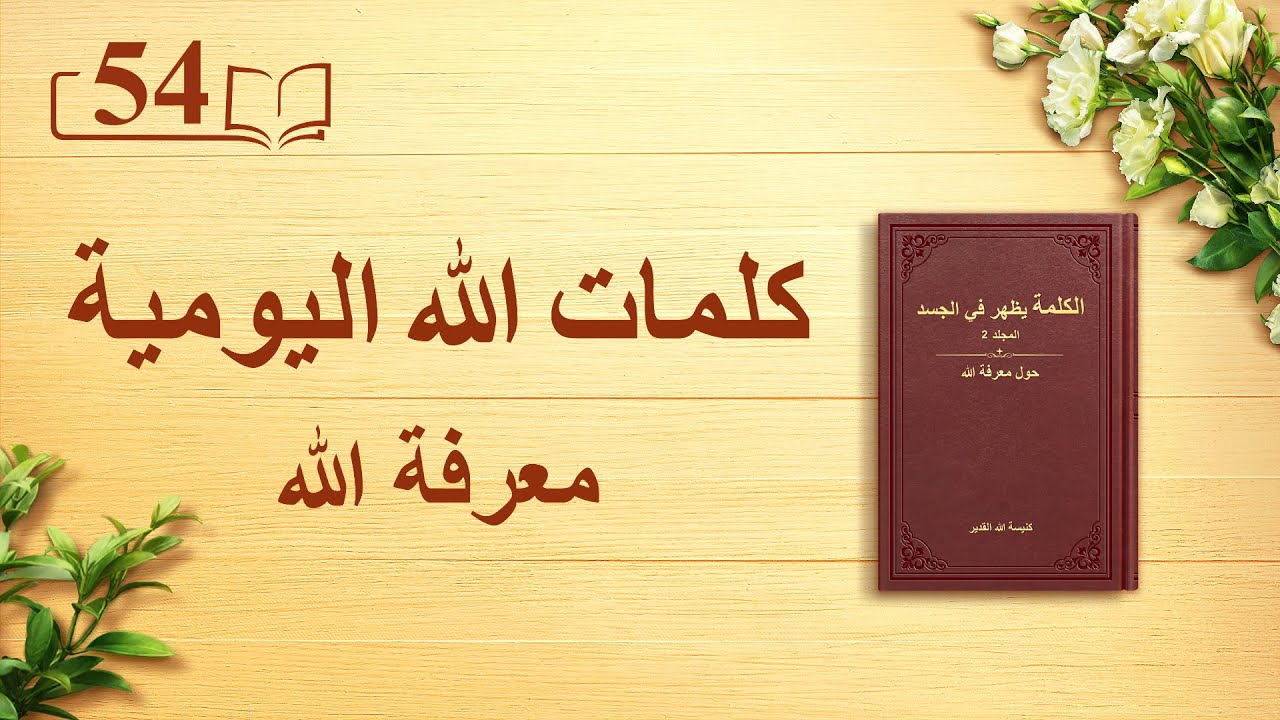 54
كلمات الله اليومية
معرفة الله
الكلمة يظهر في الجسد
المجلد 2
حول معرفة الله
كنيسة الله القدير